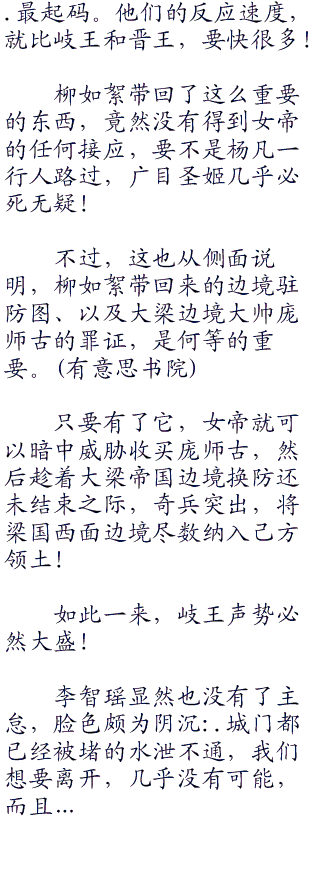 .最起码。他们的反应速度，
就比岐王和晋王，要快很多！
柳如絮带回了这么重要
的东西，竟然没有得到女帝
的任何接应，要不是杨凡一
行人路过，广目圣姬几乎必
死无疑！
不过，这也从侧面说
明，柳如絮带回来的边境驻
防图、以及大梁边境大帅庞
师古的罪证，是何等的重
要。(有意思书院)
只要有了它，女帝就可
以暗中威胁收买庞师古，然
后趁着大梁帝国边境换防还
未结束之际，奇兵突出，将
梁国西面边境尽数纳入己方
领土！
如此一来，岐王声势必
然大盛！
李智瑶显然也没有了主
怠，脸色颇为阴沉:.城门都
已经被堵的水泄不通，我们
想要离开，几乎没有可能，
而且...